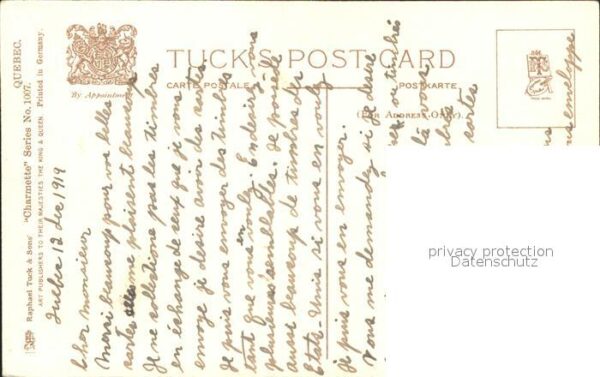 TUCK'S POST CARD
CARTE POSTALE
POSTKARTE
(FOR ADDRESS ONLY)
By Appointment
QUEBEC.
Raphael Tuck & Sons' "Charmette" Series No. 1007.
ART PUBLISHERS TO THEIR MAJESTIES THE KING & QUEEN. Printed in Germany.
12 Dec 1919
Cher monsieur
Merci beaucoup pour vos belles
cartes elles me plaisent beaucoup
Je ne collectione pas les timbres
en échange de ceux que je vous
envoye je desire avoir des cartes.
Je puis vous envoyer des timbres
tant que vous en voulez. En desirez vous
plusieurs semblables. Je possède
aussi beaucoup de timbres des
Etats-Unis si vous en voulez
je puis vous en envoyer.
Vous me demandez si je desire
ou timbrés
là vous
cartes
enveloppe
privacy protection
Datenschutz